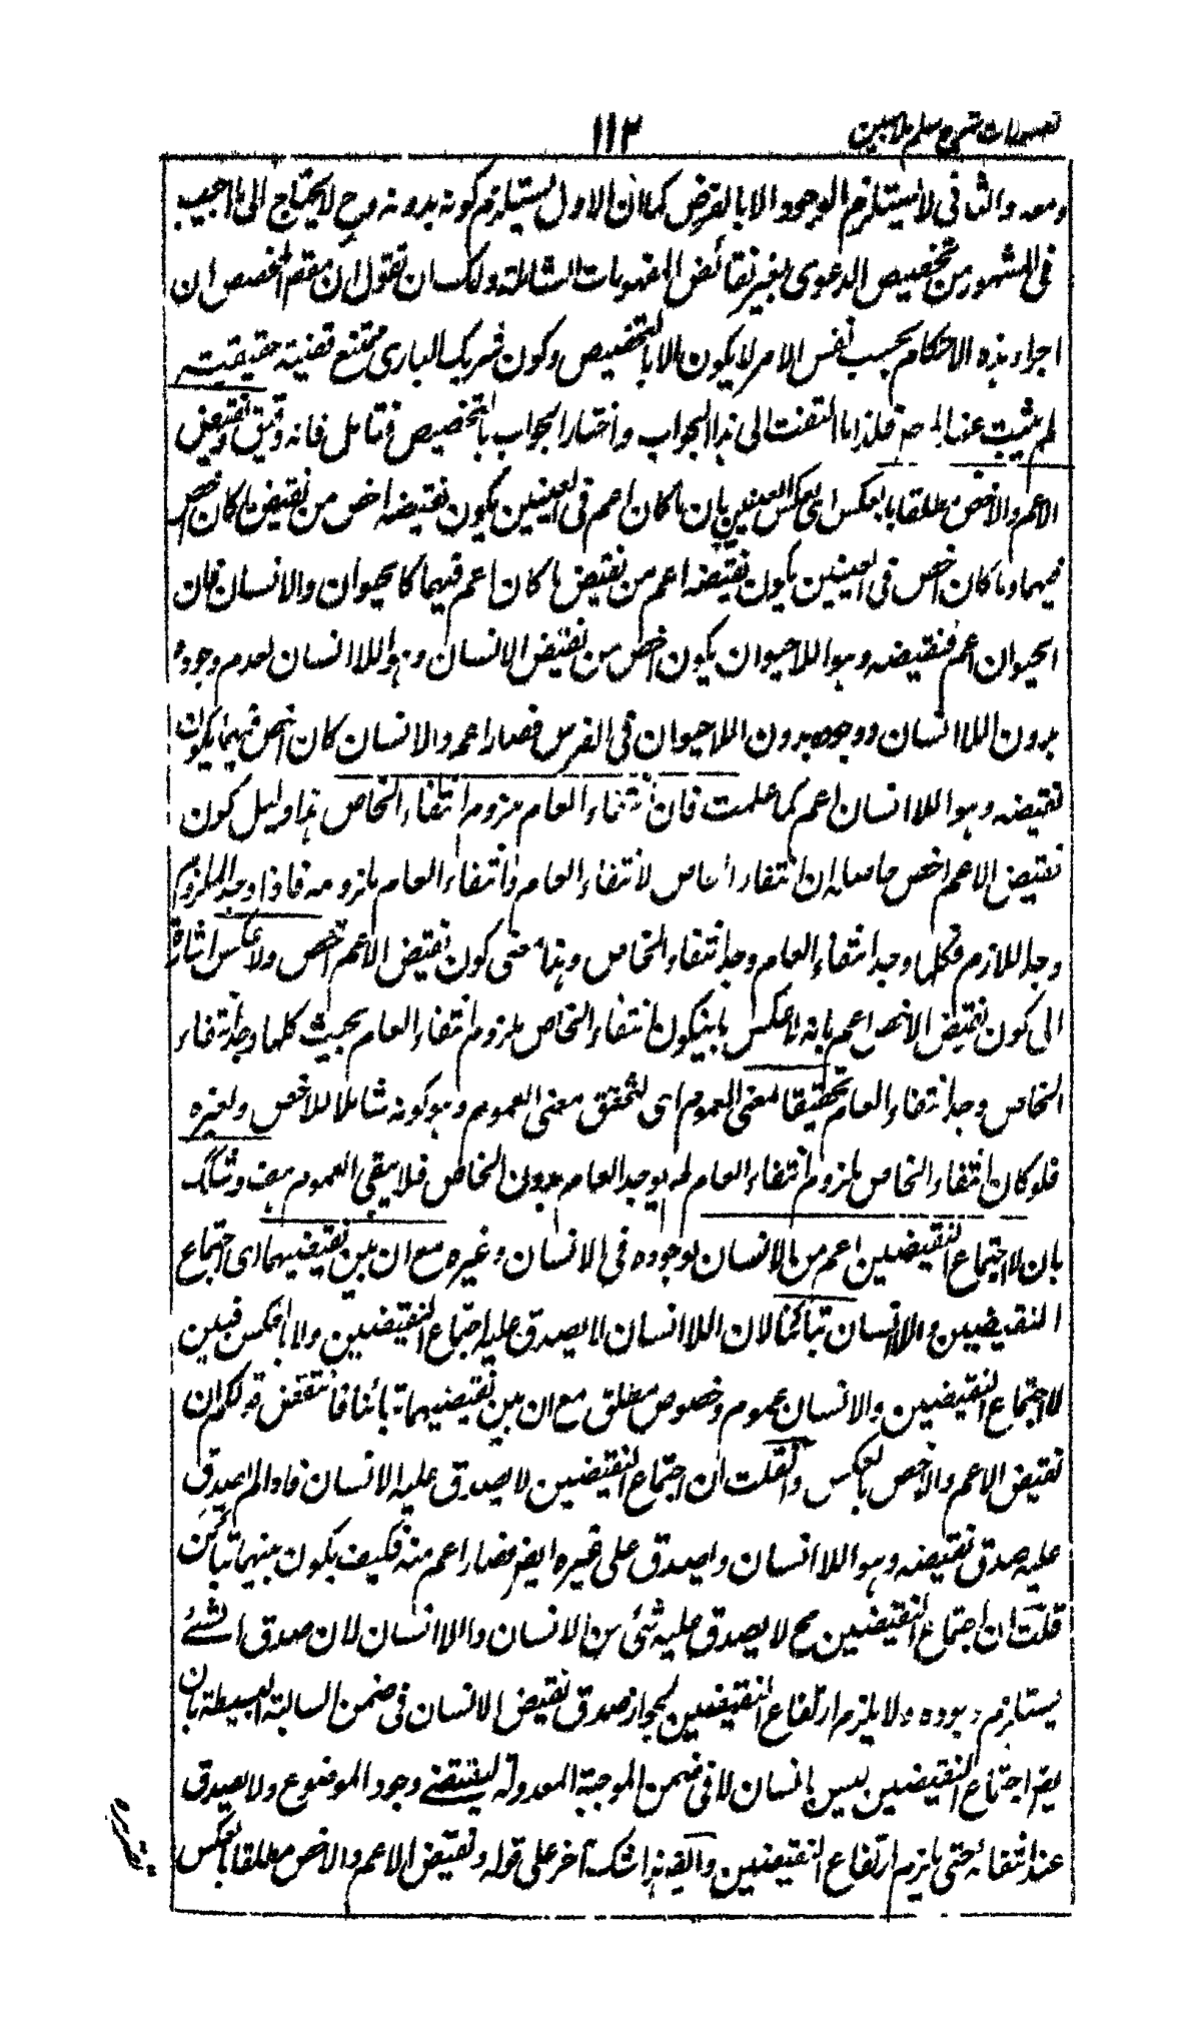 تصورات شرح سلم ملا مبین
١١٢
ومعه والثانی لا یستلزم الوجود الا بالفرض کما ان الاول یستلزم کونه بدونه وح لا یحتاج الی ما اجیب
فی المشهور من تخصیص الدعوی بغیر نقائض المفهومات الشاملة ولک ان تقول ان مقصم المخصص ان
اجراء هذه الاحکام بحسب نفس الامر لا یکون الا بالتخصیص وکون شریک الباری ممتنع قضیة حقیقیته
لم یثبت عند المصنف فلذا ما التفت الی هذا الجواب واختار الجواب بالتخصیص فتامل فانه دقیق ونقیض
الاعم والاخص مطلقا بالعکس ای بعکس العینین بان ما کان اعم فی العینین یکون نقیضه اخص من نقیض ما کان اخص
فیهما وما کان اخص فی العینین یکون نقیضه اعم من نقیض ما کان اعم فیهما کالحیوان والانسان فان
الحیوان اعم فنقیضه وهو اللاحیوان یکون اخص من نقیض الانسان وهو اللاانسان لعدم وجوده
بدون اللاانسان ووجوده بدون اللاحیوان فی الفرس فصار اعم والانسان کان اخص فیهما یکون
نقیضه وهو اللاانسان اعم کما علمت فان انتفاء العام ملزوم انتفاء الخاص هذا دلیل کون
نقیض الاعم اخص حاصله ان انتفاء الخاص لانتفاء العام وانتفاء العام ملزومه فاذا وجد الملزوم
وجد اللازم فکلما وجد انتفاء العام وجد انتفاء الخاص وهذا معنی کون نقیض الاعم اخص ولا عکس اشارة
الی کون نقیض الاخص اعم بانه لا عکس بان یکون انتفاء الخاص ملزوم انتفاء العام بحیث کلما وجد انتفاء
الخاص وجد انتفاء العام تحقیقا لمعنی العموم ای لتحقق معنی العموم وهو کونه شاملا للاخص ولغیره
فلو کان انتفاء الخاص ملزوم انتفاء العام لم یوجد العام بدون الخاص فلا یبقی العموم هف وشکک
بان لا اجتماع النقیضین اعم من الانسان لوجوده فی الانسان وغیره مع ان بین نقیضیهما ای اجتماع
النقیضین واللاانسان تباینا لان اللاانسان لا یصدق علیه اجتماع النقیضین ولا بالعکس فبین
لا اجتماع النقیضین والانسان عموم وخصوص مطلق مع ان بین نقیضیهما تباینا فانتقض قولکم ان
نقیض الاعم والاخص بالعکس وان قلت ان اجتماع النقیضین لا یصدق علیه الانسان فاذا لم یصدق
علیه صدق نقیضه وهو اللاانسان ویصدق علی غیره ایضا فصار اعم منه فکیف یکون بینهما تباین
قلت ان اجتماع النقیضین مح لا یصدق علیه شئ من الانسان واللاانسان لان صدق الشئ
یستلزم وجوده ولا یلزم ارتفاع النقیضین لجواز صدق نقیض الانسان فی ضمن السالبة البسیطة بان
یقر اجتماع النقیضین لیس بانسان لا فی ضمن الموجبة المعدولة لیقتضی وجود الموضوع ولا یصدق
عند انتفائه حتی یلزم ارتفاع النقیضین وایضا هذا شک آخر علی قوله ونقیض الاعم والاخص مطلقا بالعکس